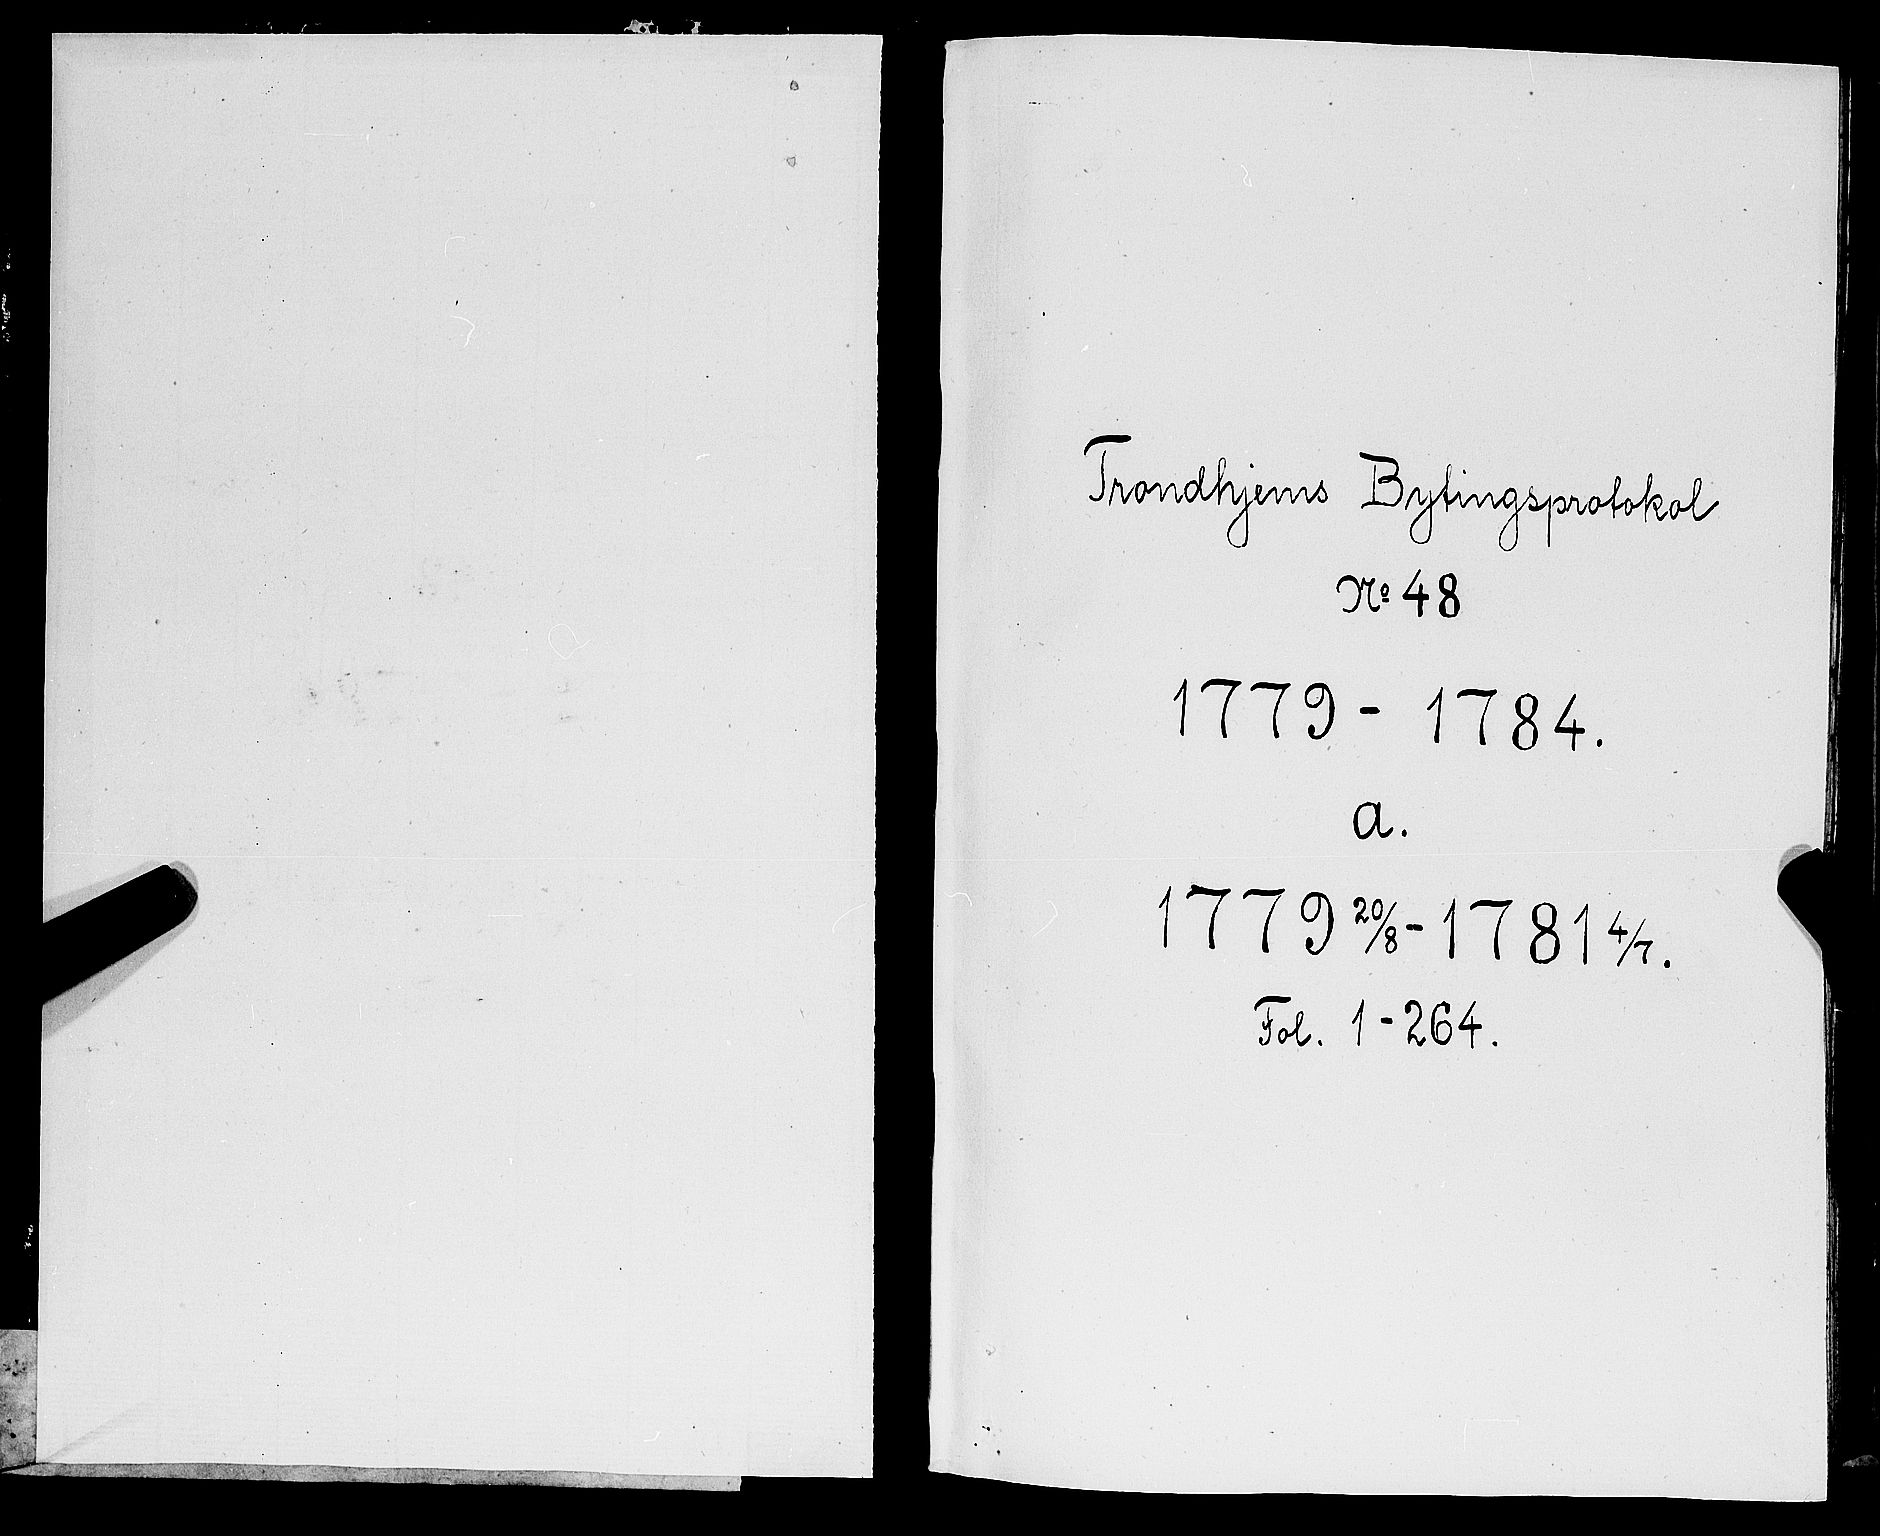 Trondhjems Bytingsprotokol
No 48
1779 - 1784.
a.
1779 20/8 - 1781 4/7.
Fol. 1 - 264.